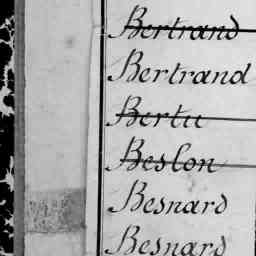 Bertrand
Bertrand
Bertu
Beslon
Besnard
Besnard